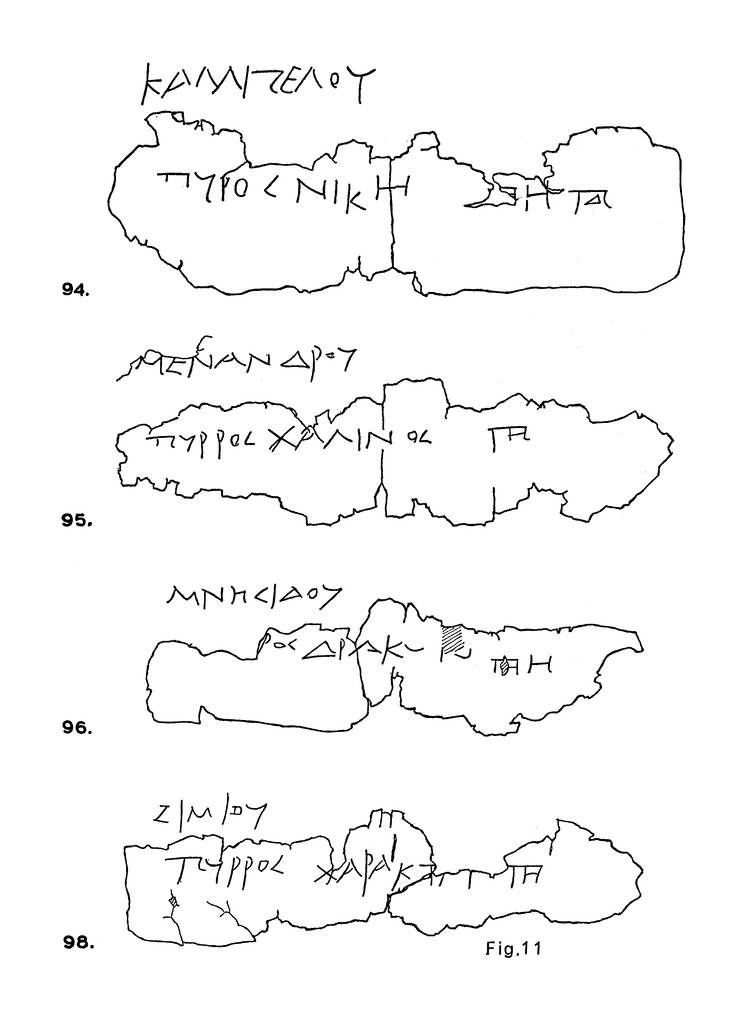 ΚΑΛΛΙΠΕΛΟΥ
ΠΥΡΟΣ ΝΙΚΗ
94.
ΜΕΝΑΝΔΡΟΥ
ΠΥΡΡΟΣ ΧΑΛΙΝΟΣ
95.
ΜΝΗΣΙΔΟΥ
ΡΟΣ ΔΡΑΚ
96.
ΖΙΜΙΟΥ
ΠΥΡΡΟΣ ΧΑΡΑΚ
98.
Fig.11